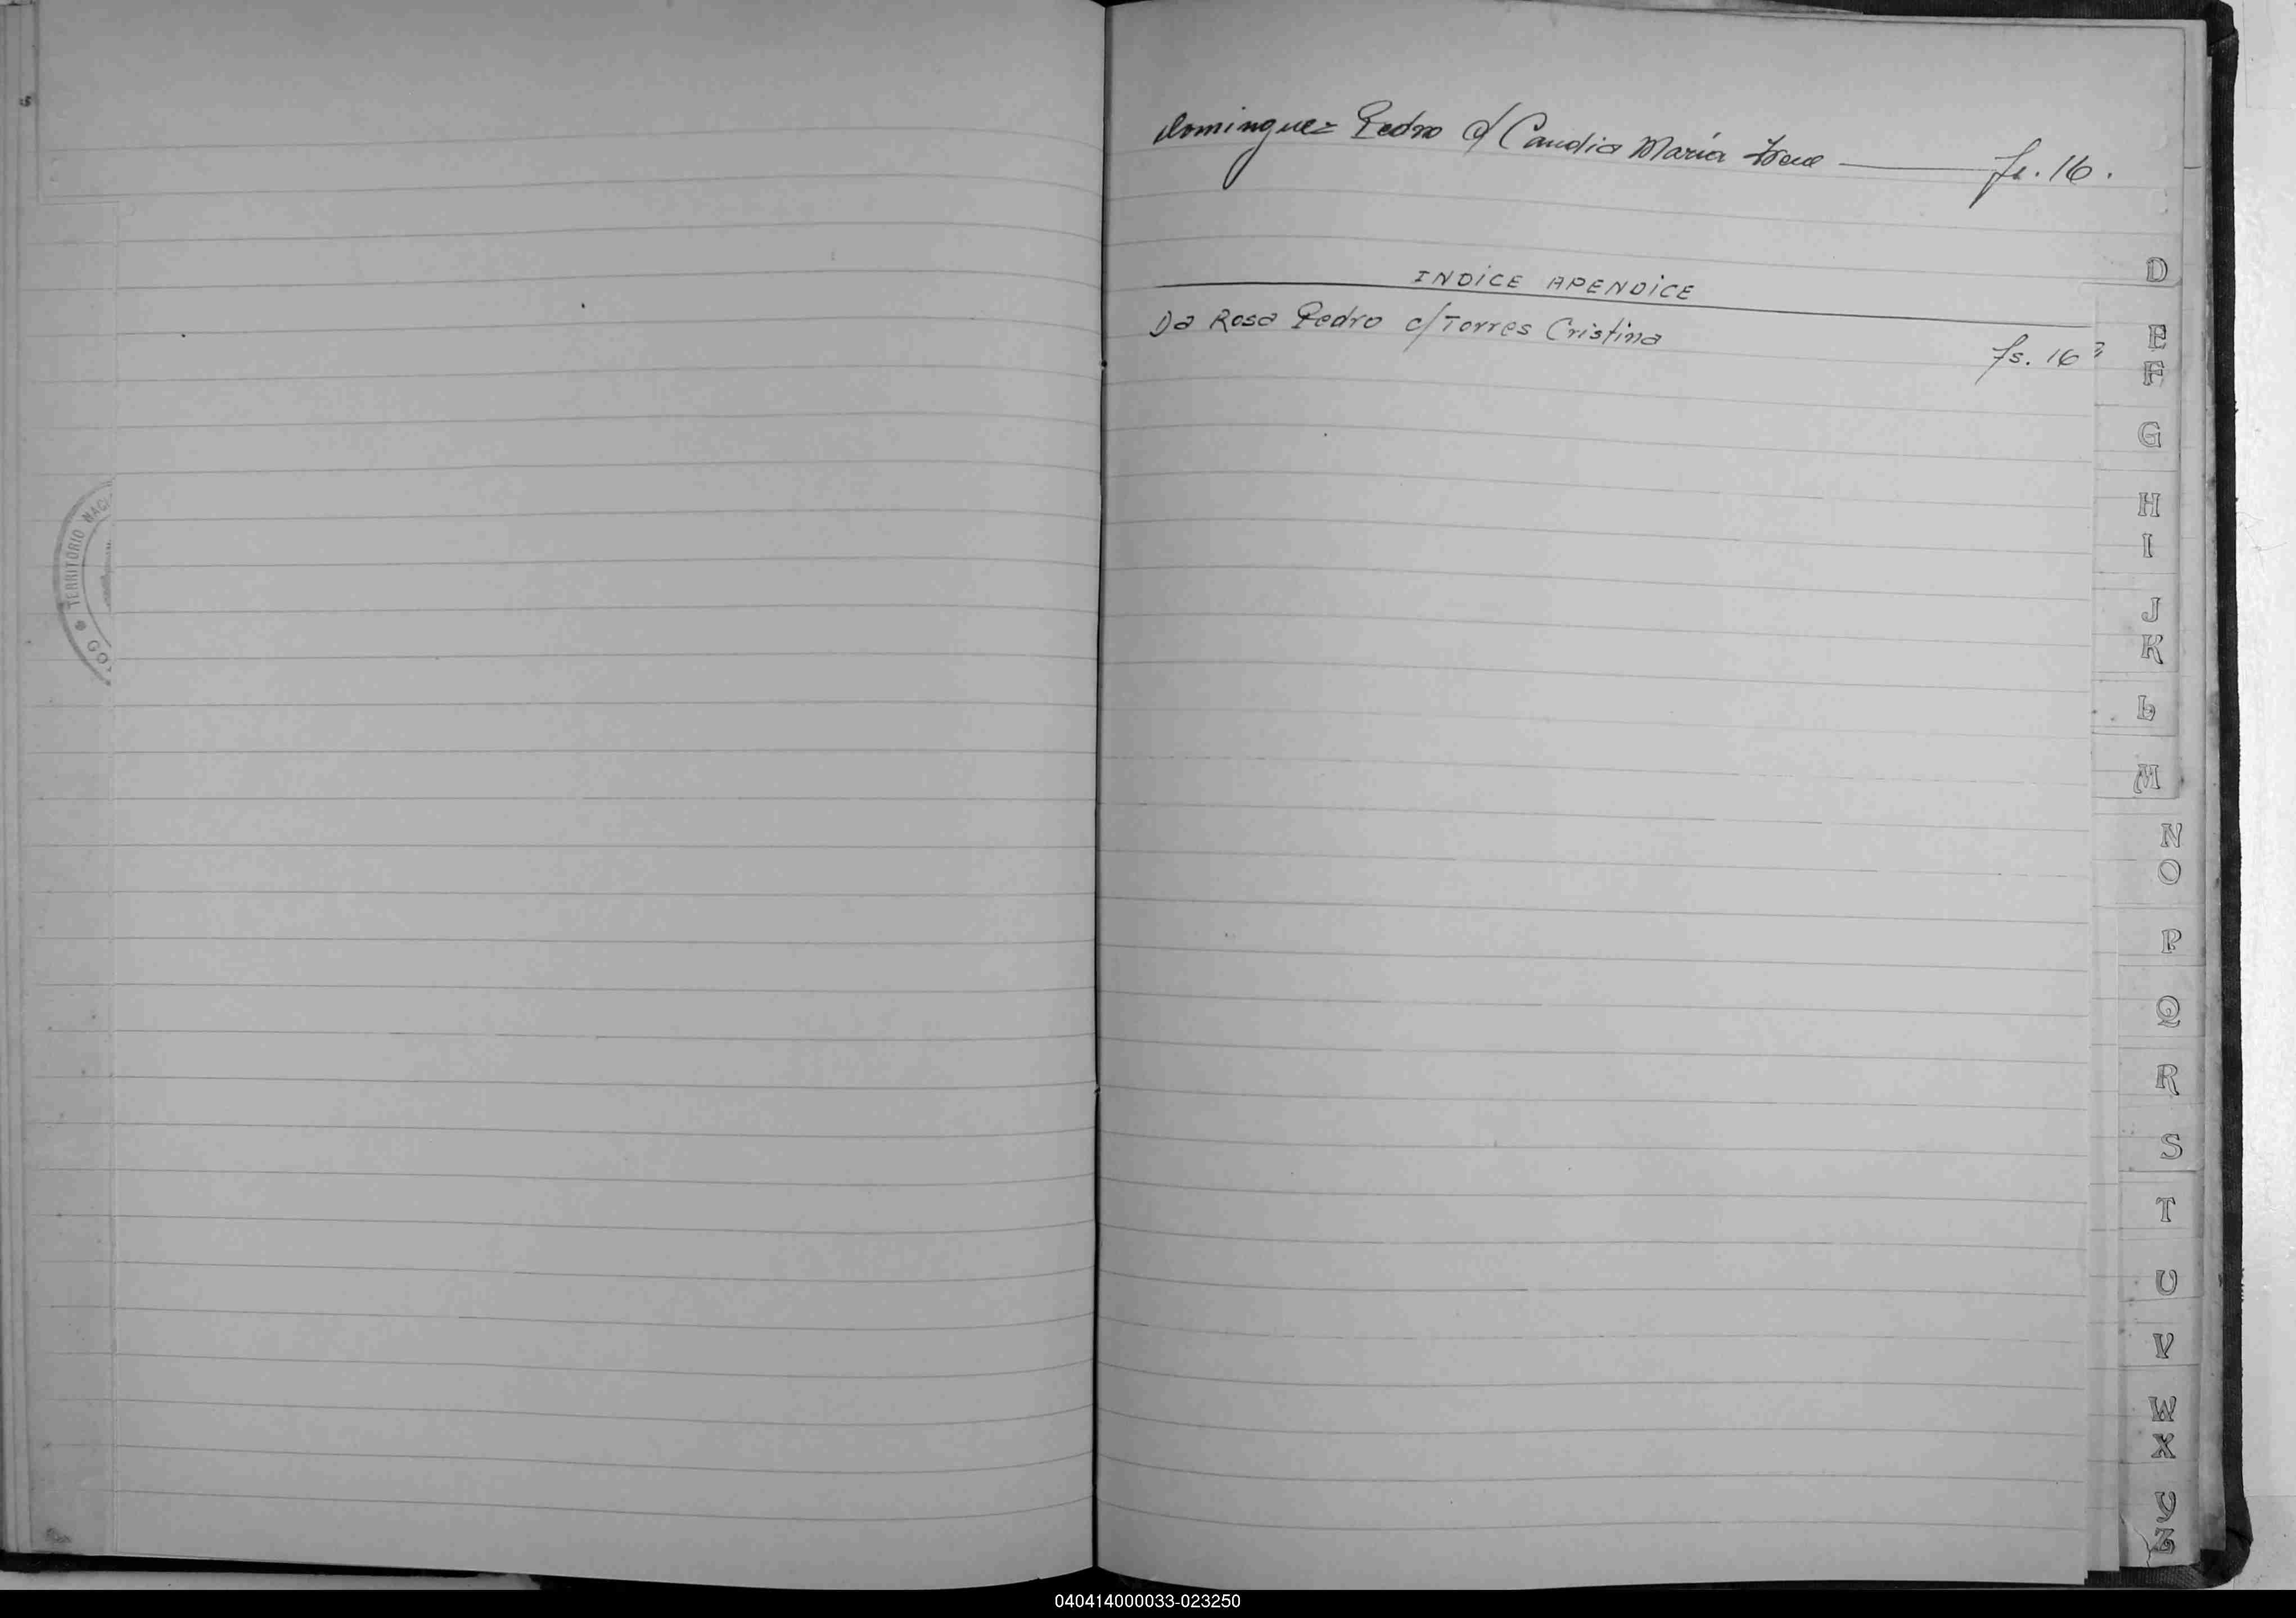 TERRITORIO NACI
GO
Dominguez Pedro c/ Candia María Irene — fs. 16.
INDICE APENDICE
Da Rosa Pedro c/Torres Cristina fs. 16
D
E
F
G
H
I
J
K
L
M
N
O
P
Q
R
S
T
U
V
W
X
Y
Z
040414000033-023250